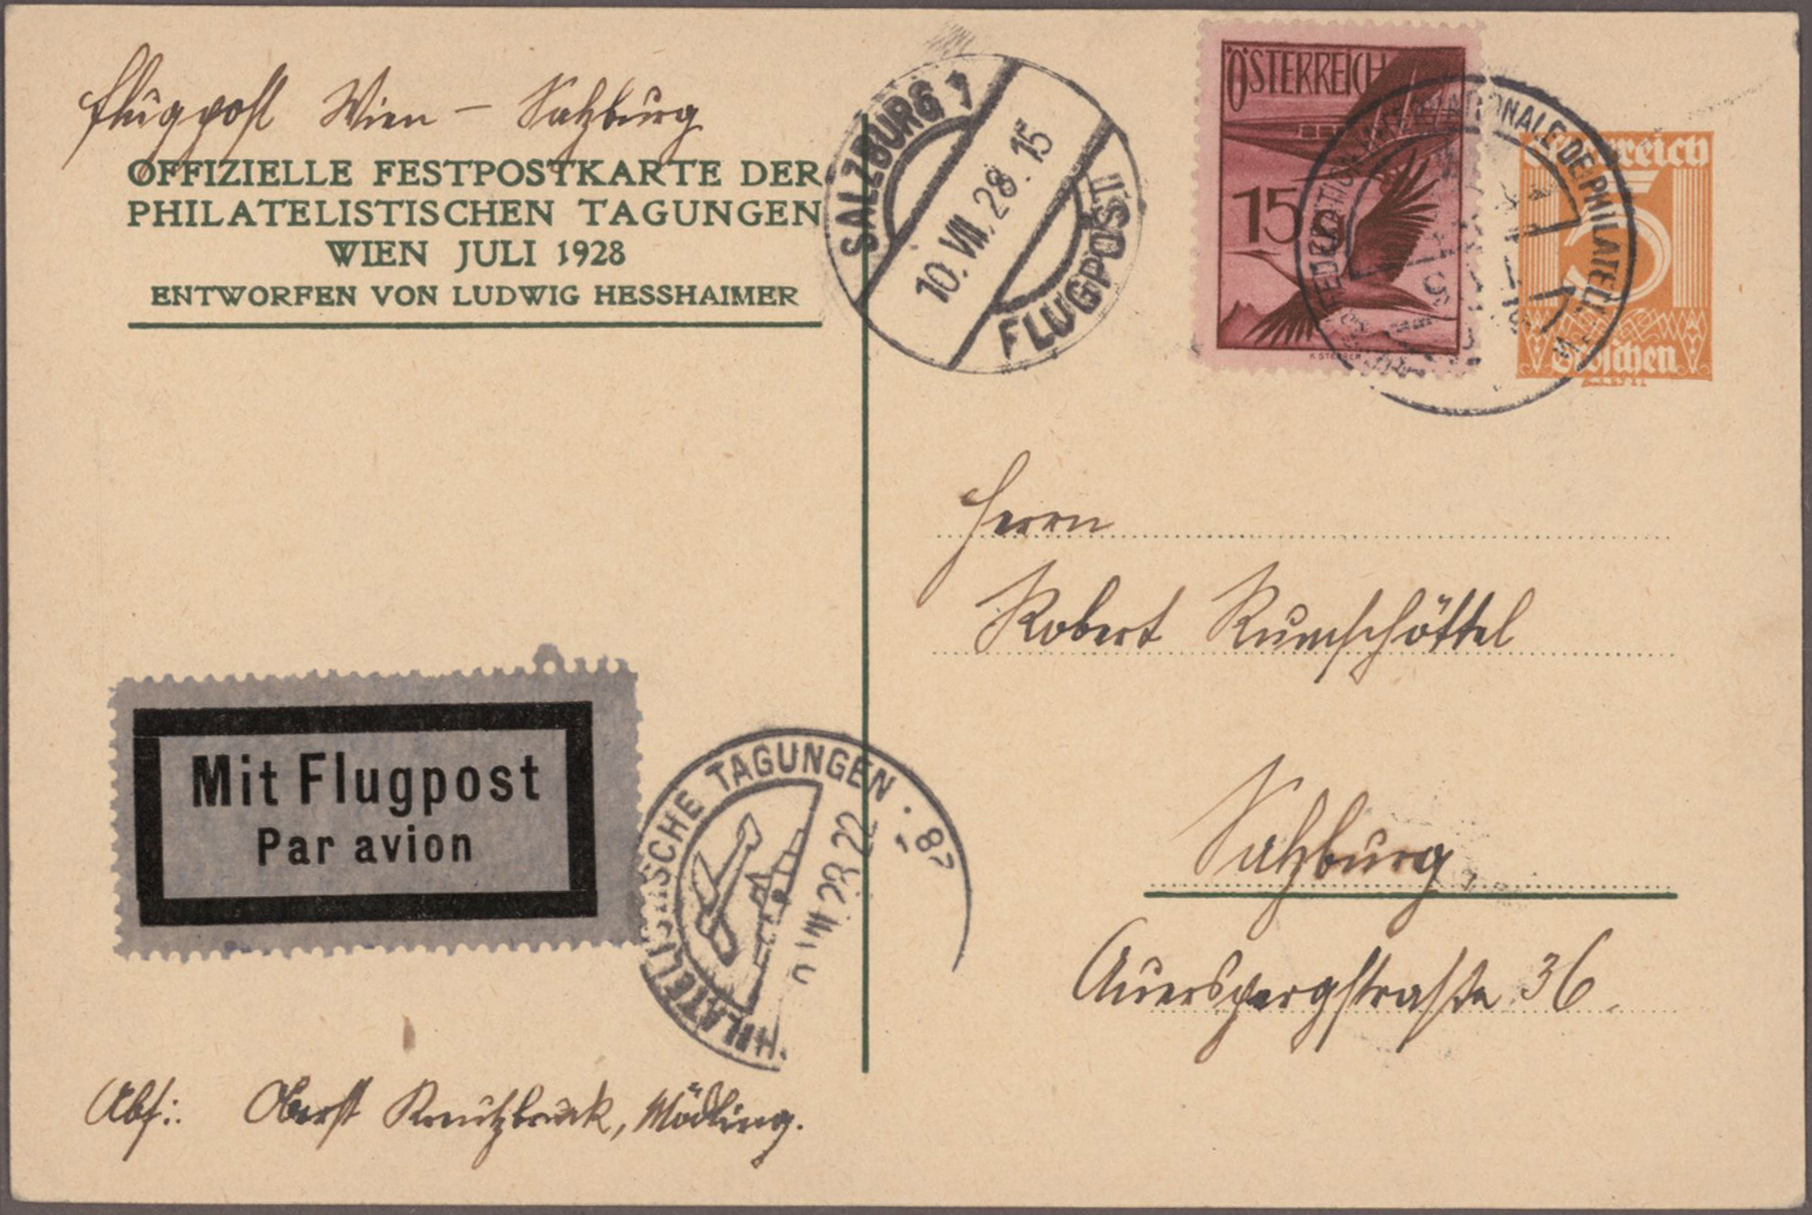 Flugpost Wien – Salzburg
OFFIZIELLE FESTPOSTKARTE DER
PHILATELISTISCHEN TAGUNGEN
WIEN JULI 1928
ENTWORFEN VON LUDWIG HESSHAIMER
SALZBURG 1
10.VII.28.15
FLUGPOST
ÖSTERREICH
15
Österreich
5
Groschen
Herrn
Robert Rumschöttel
Salzburg
Auerspergstraße 36.
Mit Flugpost
Par avion
TAGUNGEN
28 22
Abs.: Oberst Mödling.